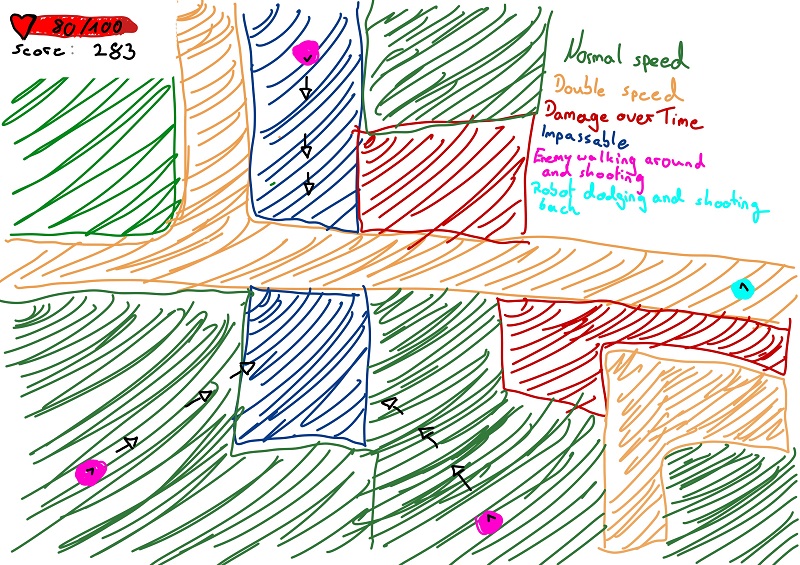 80/100
score: 283
Normal speed
Double speed
Damage over Time
Impassable
Enemy walking around
and shooting
Robot dodging and shooting
back